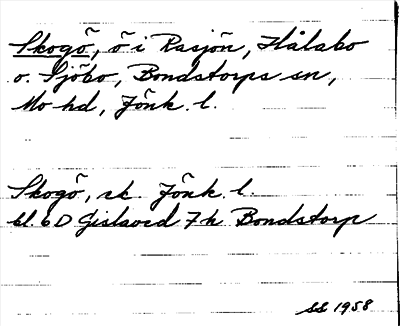 Skogö, ö i Rasjön, Hålabo
o. Sjöbo, Bondstorps sn,
Mo hd, Jönk. l.
Skogö, rk. Jönk. l.
bl. 6 D Gislaved 7 h Bondstorp
SS 1958